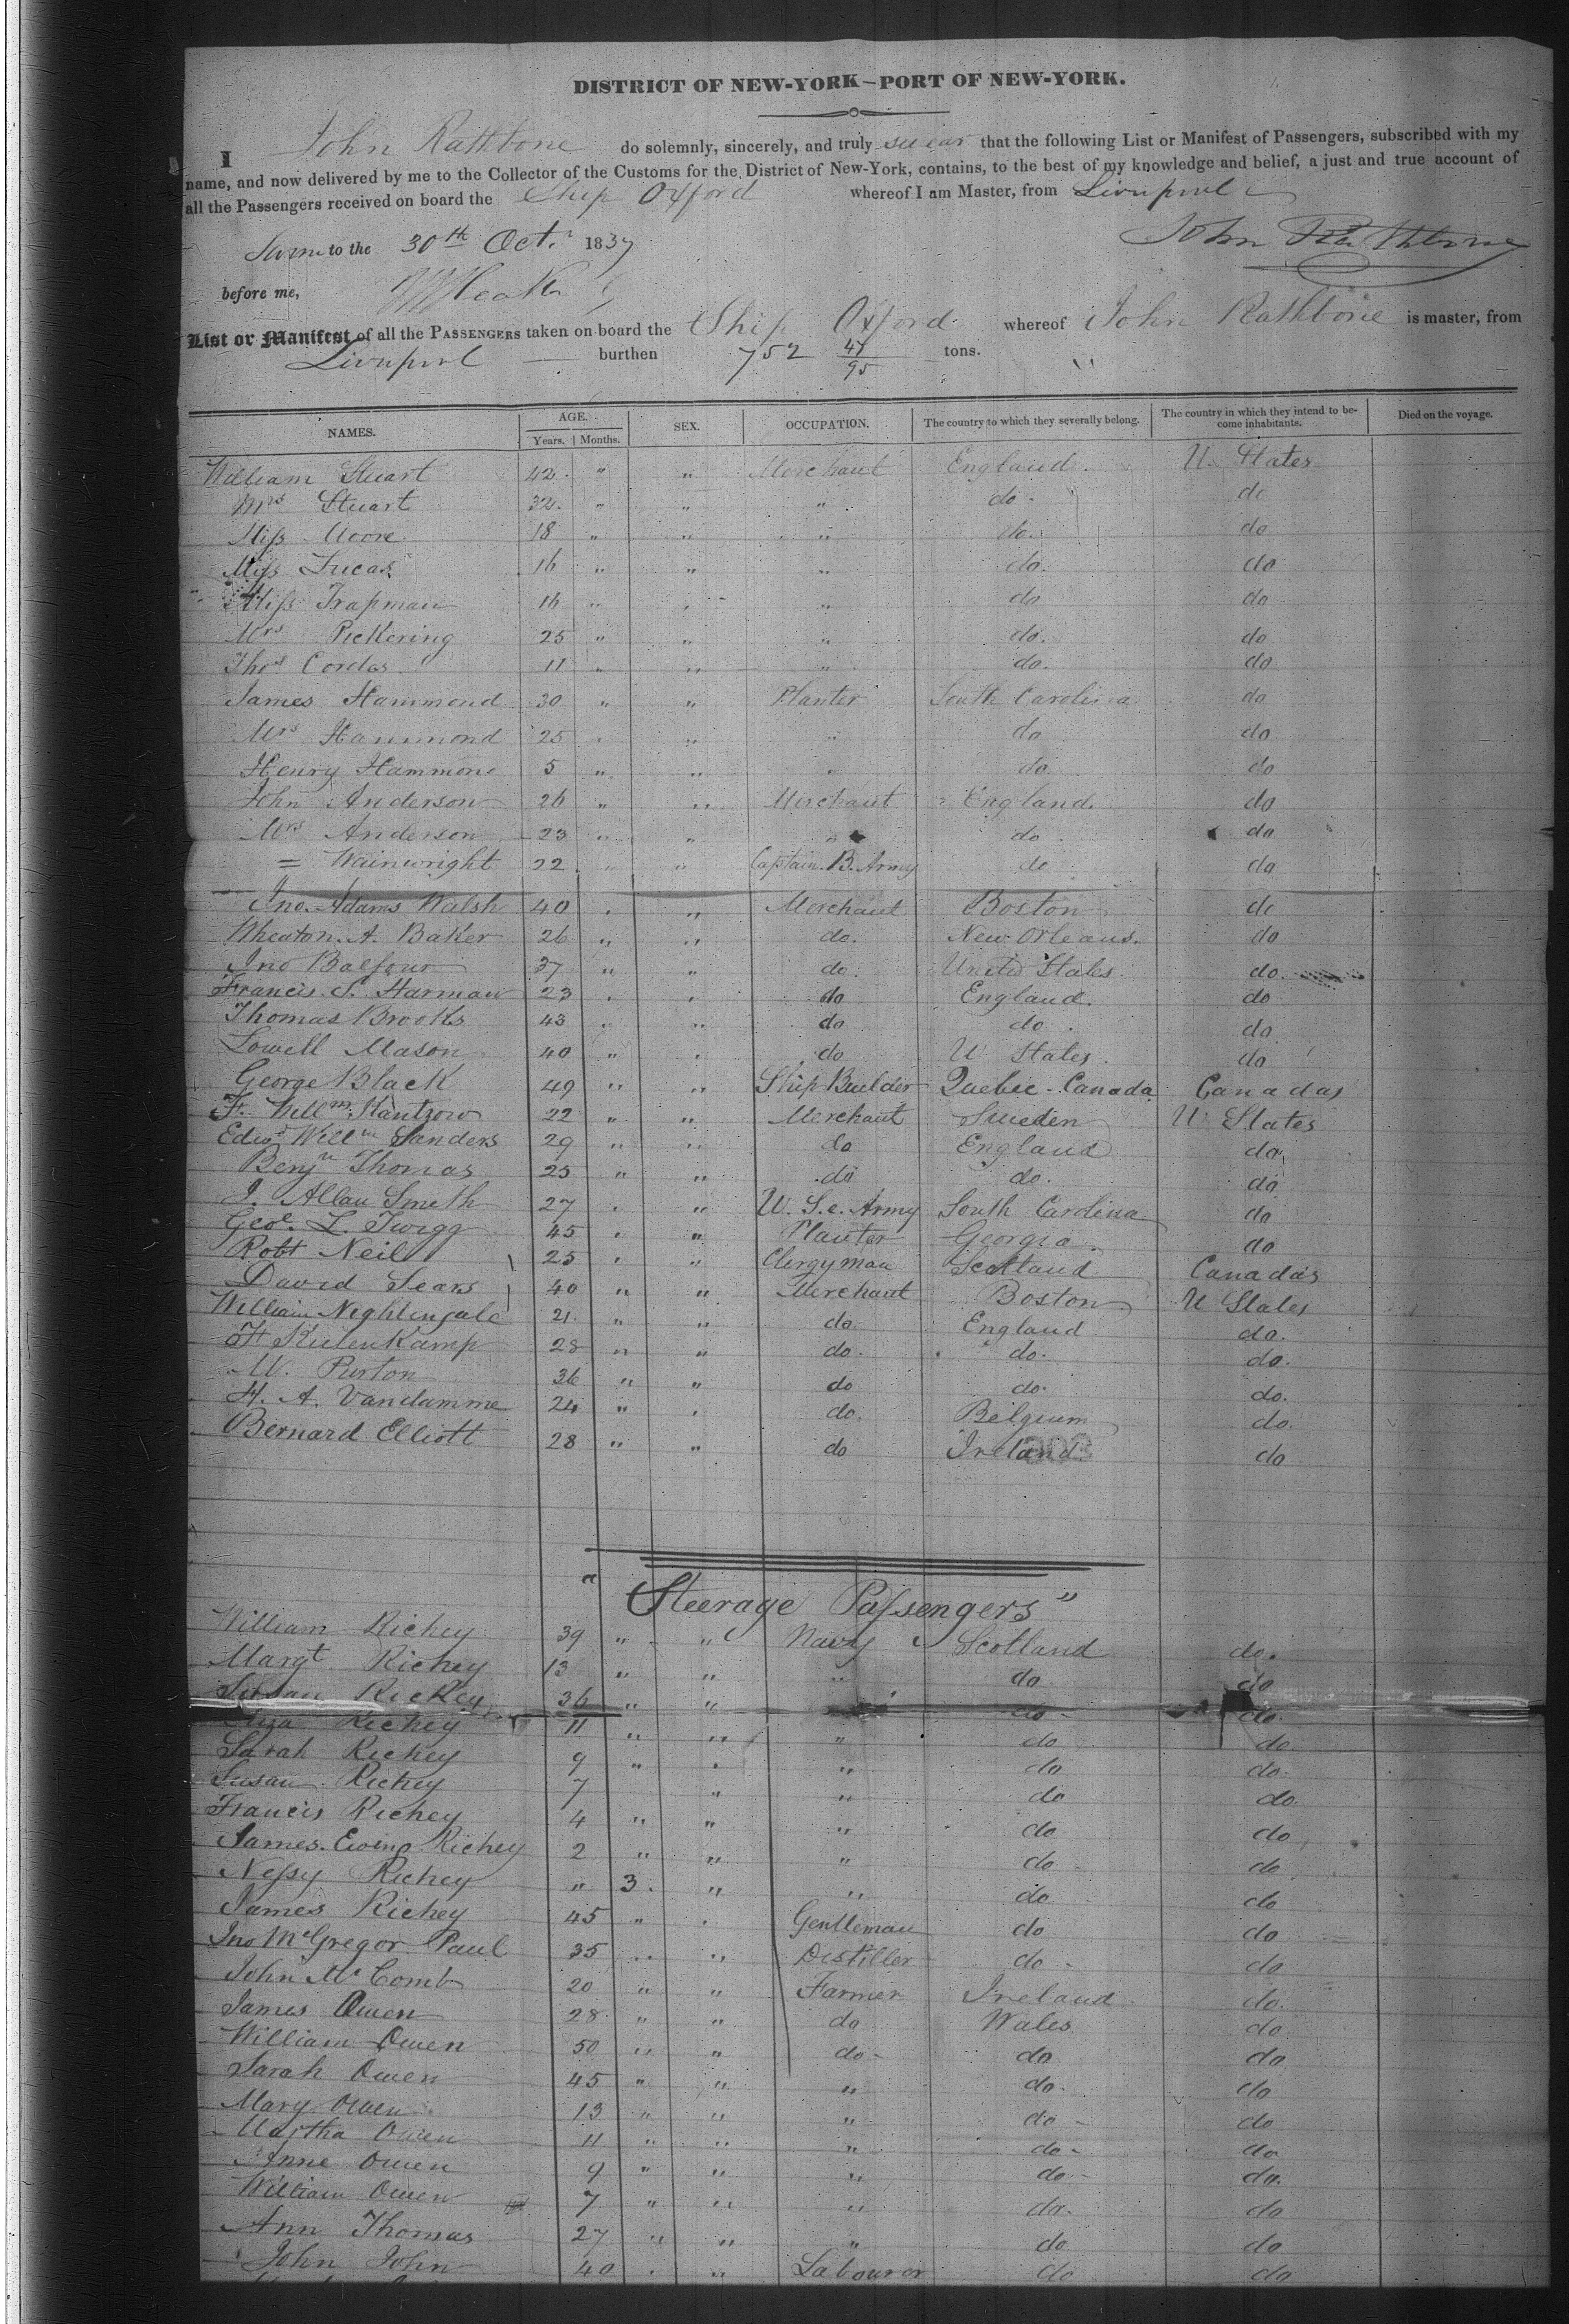 DISTRICT OF NEW-YORK—PORT OF NEW-YORK.
I John Rathbone do solemnly, sincerely, and truly swear that the following List or Manifest of Passengers, subscribed with my
name, and now delivered by me to the Collector of the Customs for the District of New-York, contains, to the best of my knowledge and belief, a just and true account of
all the Passengers received on board the Ship Oxford whereof I am Master, from Liverpool
Sworn to the 30th Oct. 1837 John Rathbone
before me,
List or Manifest of all the PASSENGERS taken on board the Ship Oxford whereof John Rathbone is master, from
Liverpool burthen 752 47/95 tons.
NAMES. AGE. Years. Months. SEX. OCCUPATION. The country to which they severally belong. The country in which they intend to become inhabitants. Died on the voyage.
William Stuart 42 " " Merchant England. U. States
Mrs Stuart 32 " " " do do
Miss Moore 18 " " " do. do
Miss Lucas 16 " " " do. do
Miss Trapman 16 " " " do do
Mrs Pickering 25 " " " do. do
Thos Cordes 11 " " " do. do
James Hammond 30 " " Planter South Carolina do
Mrs Hammond 25 " " " do do
Henry Hammond 5 " " " do do
John Anderson 26 " " Merchant England. do
Mrs Anderson 23 " " " do do
= Wainwright 22 " " Captain. B. Army do do
Jno. Adams Walsh 40 " " Merchant Boston do
Wheaton. A. Baker 26 " " do. New Orleans. do
Jno Balfour 37 " " do. United States. do.
Francis. S. Harman 23 " " do England. do
Thomas Brooks 43 " " do do. do
Lowell Mason 40 " " do U States. do
George Black 49 " " Ship Builder Quebec - Canada Canadas
F. Willm. Kantzow 22 " " Merchant Sweden U States
Edwd Willm Sanders 29 " " do England do
Benjn Thomas 25 " " do do. do
J. Allan Smith 27 " " U. S.s. Army South Carolina do
Geoe. L. Twigg 45 " " Planter Georgia. do
Robt Neill 25 " " Clergyman Scotland Canadas
David Sears 40 " " Merchant Boston U States
William Nightingale 21. " " do England do.
28 " " do. do. do.
W. Purton 36 " " do do. do.
H. A. Vandamme 24 " " do. Belgium do.
Bernard Elliott 28 " " do Ireland. do
" Steerage Passengers "
William Richey 39 " " Navy Scotland do.
Margt Richey 13 " " " do do
Susan Richey 36 " " do do.
Eliza Richey 11 " " " do do
Sarah Richey 9 " " " do do.
Susan Richey 7 " " do do.
Francis Richey 4 " " " do do
James. Ewing Richey 2 " " " do do
Nessy Richey " 3. " " do do
James Richey 45 " " Gentleman do do
Jno McGregor Paul 35 " " Distiller do do
John Mc Comb 20 " " Farmer Ireland do.
James Owen 28 " " do Wales do
William Owen 50 " " do do do
Sarah Owen 45 " " " do. do
Mary Owen 13 " " " do do
Martha Owen 11 " " " do do
Anne Owen 9 " " " do do.
William Owen 7 " " " do. do
Ann Thomas 27 " " " do do
John John 40 " " Labouror do do